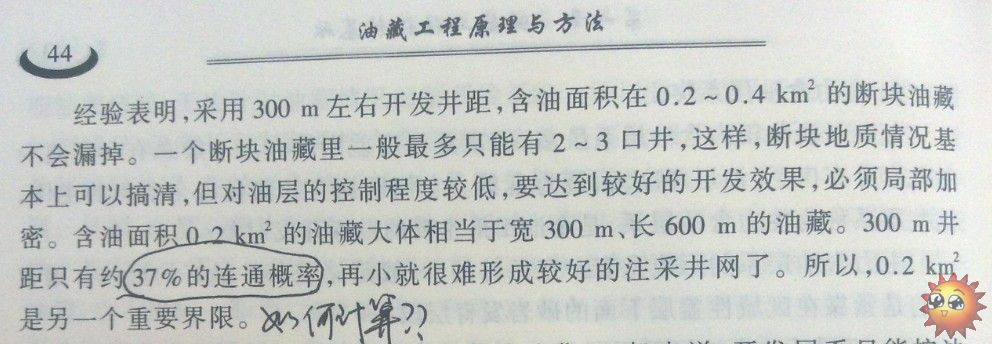 油藏工程原理与方法
44
经验表明,采用 300 m 左右开发井距,含油面积在 0.2~0.4 km² 的断块油藏
不会漏掉。一个断块油藏里一般最多只能有 2~3 口井,这样,断块地质情况基
本上可以搞清,但对油层的控制程度较低,要达到较好的开发效果,必须局部加
密。含油面积 0.2 km² 的油藏大体相当于宽 300 m、长 600 m 的油藏。300 m 井
距只有约 37%的连通概率,再小就很难形成较好的注采井网了。所以,0.2 km²
是另一个重要界限。如何计算??